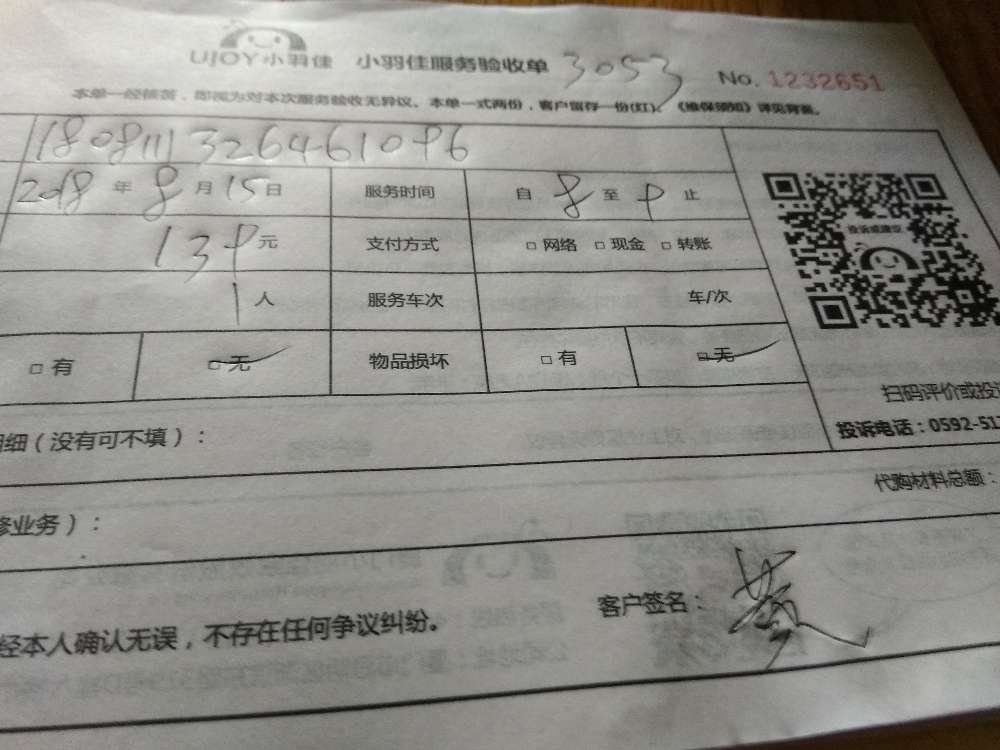 UJOY小羽佳 小羽佳服务验收单 3053 No. 1232651
本单一经核签，即视为对本次服务验收无异议。本单一式两份，客户留存一份(红)。《维保须知》详见背面。
2018年8月15日 服务时间 自8至9止
139元 支付方式 □网络 □现金 □转账
1人 服务车次 车/次
□有 □无 物品损坏 □有 □无
投诉或建议
扫码评价或投
投诉电话：0592-51
明细（没有可不填）：
代购材料总额：
修业务）：
客户签名：
经本人确认无误，不存在任何争议纠纷。